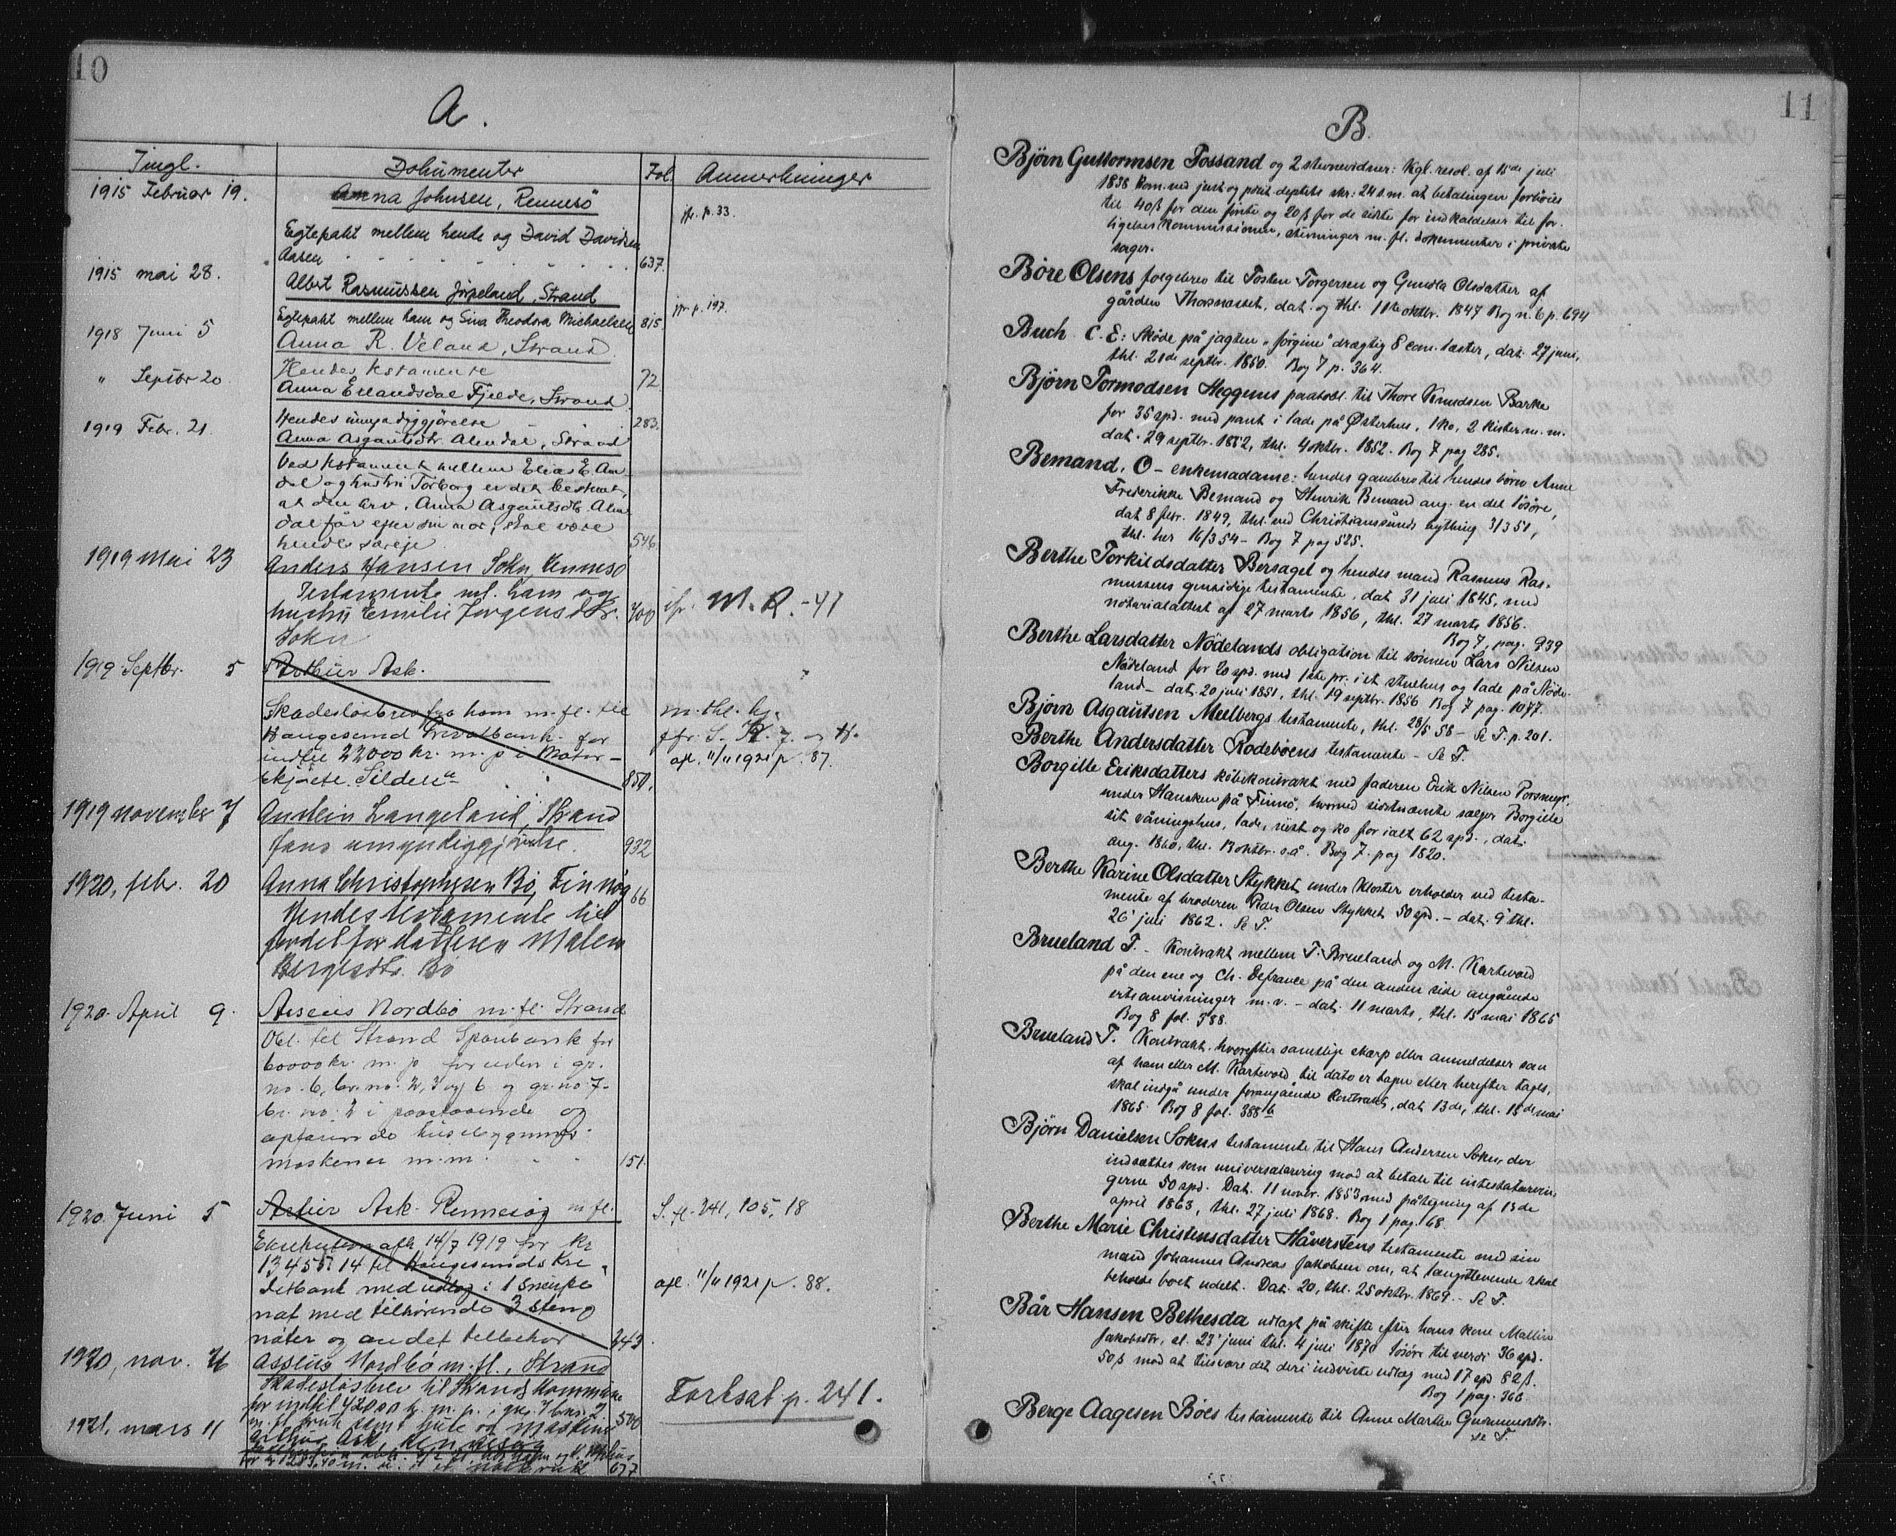 10
A.
Tingl. Dokumenter Fol. Anmerkninger
1915 Februar 19. Anna Johnsen, Rennesö
jfr. p. 33.
Egtepakt mellem hende og David Davidsen
Aasen 637.
1915 mai 28. Albert Rasmussen Jörpeland, Strand
jfr. p. 197.
Egtepakt mellem ham og Sina Theodora Michaelsen 815.
1918 Juni 5 Anna R. Veland, Strand
Hendes testamente 72
" Septbr 20. Anna Erlandsdal Fjelde, Strand
Hendes umyndiggjørelse 283.
1919 Febr. 21 Anna Asgautsdtr. Alendal, Strand
Ved testament mellem Elias E.
dal og hustru Torborg er det bestemt,
at den arv, Anna Asgautsdtr.
dal får efter sin mor, skal være
hendes særeje. 546.
1919 Mai 23 Anders Hansen Sokn Rennesö
Testamente ml. ham og
hustru Emilie Jørgensdtr. 700 jfr. M. R. - 41
Sokn
1919 Septbr. 5 Arthur Ask.
Skadesløsbrev fra ham m. fl. til m. thl. hj.
Haugesund Privatbank for
indtil 22000 kr. m. p. i Motor- afl. 11/11 1921 p. 87.
skjøite "Silden" 850.
1919 november 7 Andrein Langeland, Strand
hans umyndiggjørelse. 932
1920, febr. 20 Anna Christophersen Bö, Finnöy 66
Hendes testamente til
fordel for datteren Malene
Bergesdtr. Bö
1920 April 9. Assens Nordbö m. fl. Strand
Obl. til Strand Sparebank for
60000 kr. m. p. foruden i gr.
no. 6, br. no. 2, 3 og 6 og gr. no. 7-
br. no. 2 i paastaaende og
opførende husebygninger
maskener m.m. 151.
1920 Juni 5 Arthur Ask Rennesöy m. fl. S. fl. 241, 105, 18
Eksekution afh. 14/7 1919 for kr
13455.14 til Haugesunds Kre-
ditbank med udlæg i 1 snurpe
not med tilhørende 3 steng afl. 11/11 1921 p. 88.
nøter og andet tilbehør 343.
1920, nov. 26 Assens Nordbö m. fl., Strand
Skadesløsbrev til Strands Kommune
for indtil 42000 kr. m. p. i gr. 7 br. 2
m. fl. bruk samt hus og maskiner 500
Fortsat p. 241.
1921, mars 11 Arthur Ask, Rennesöy
677
11
B.
Bjørn Guttormsen Fossand og 2 stevnevidner: Kgl. resol. af 15de juli
1838 kom. ved just og polit deptets skr: 24 s.m. at betalingen forhøies
til 40β for den første og 20β for de sidste for indkaldelser til for-
ligelseskommissionen, stevninger m. fl. dokumenter i private
sager.
Børe Olsens følgebrev til Tosten Torgersen og Gunilla Olsdatter af
gården Thorsnæset, dat. og thl. 11te oktbr. 1847 Bog n. 6 p. 694
Buch C. E: Skøde på jagten "Jørgine" drægtig 8 com. læster, dat. 27 juni,
thl. 21de septbr. 1850. Bog 7 p. 364.
Bjørn Tormodsen Heggems panteobl. til Thore Knudsen Barke
for 35 spd. med pant i lade på Østerhus, 1 ko, 2 kister m. m.
dat. 29 septbr. 1852, thl. 4 oktbr. 1852. Bog 7 pag 285.
Bemand, O - enkemadame: hendes gavebrev til hendes børn Anne
Frederikke Bemand og Henrik Bemand ang. en del løsøre,
dat 8 febr. 1849, thl. ved Christianssunds bything 31/3 51,
thl. her 16/3 54 - Bog 7 pag 525.
Berthe Torkildsdatter Bersaget og hendes mand Rasmus Ras-
mussens gensidige testamente, dat 31 juli 1845, med
notarialattest af 27 marts 1856, thl. 27 marts 1856.
Bog 7, pag. 939
Berthe Larsdatter Nödelands obligation til sønnen Lars Nilsen
Nødeland for 20 spd. med 1ste pr. i et stuehus og lade på Nøde-
land - dat. 20 juli 1851, thl. 19 septbr. 1856 Bog 7 pag. 1077.
Bjørn Asgautsen Meelbergs testamente, thl. 28/5 58 - Se T. p. 201.
Berthe Andersdatter Rodebøens testamente - Se T.
Borgille Eriksdatters købekontrakt med faderen Erik Nilsen Porsmyr
under Hausken på Finnö, hvorved sidstnævnte sælger Borgille
sit våningshus, lade, nøst og ko for ialt 62 spd., dat.
aug. 1860, thl. 13 oktbr. s.å. Bog 7. pag 1820.
Berthe Karine Olsdatter Stykket under Kloster erholder ved testa-
mente af broderen Peder Olsen Stykket 50 spd. - dat. 9 thl.
26 juli 1862. Se T.
Brueland T. - Kontrakt mellem T. Brueland og M. Kartevold
på den ene og Ch. Defrance på den anden side angående
ertsanvisninger m.v. - dat. 11 marts, thl. 15 mai 1865
Bog 8 fol. 388.
Brueland T. Kontrakt, hvorefter samtlige skærp eller anmeldelser som
af ham eller M. Kartevold til dato er tagne eller herefter tages,
skal indgå under forangående kontrakt, dat 13de, thl. 15de mai
1865. Bog 8 fol. 388 b
Bjørn Danielsen Sokns testamente til Hans Andersen Sokn, der
indsættes som universalarving mod at betale til intestatarvin-
gerne 50 spd. Dat. 11 novbr. 1853 med påtegning af 13de
april 1863, thl. 27 juli 1868. Bog 1 pag 68.
Berthe Marie Christensdatter Håverstens testamente med sin
mand Johannes Andreas Jakobsen om, at længstlevende skal
beholde boet udelt. Dat. 20, thl. 25 oktbr. 1869. - Se T.
Bår Hansen Bethesda udlagt på skifte efter hans kone Malline
Jakobsdtr., sl. 23 juni thl. 4 juli 1870 løsøre til værdi 36 spd.
50β mod at tilsvare det deri indviste udlæg med 17 spd 82β.
Bog 1 pag. 366.
Berge Aagesen Böes testamente til Anne Marthe Gudmundsdtr.
se T.